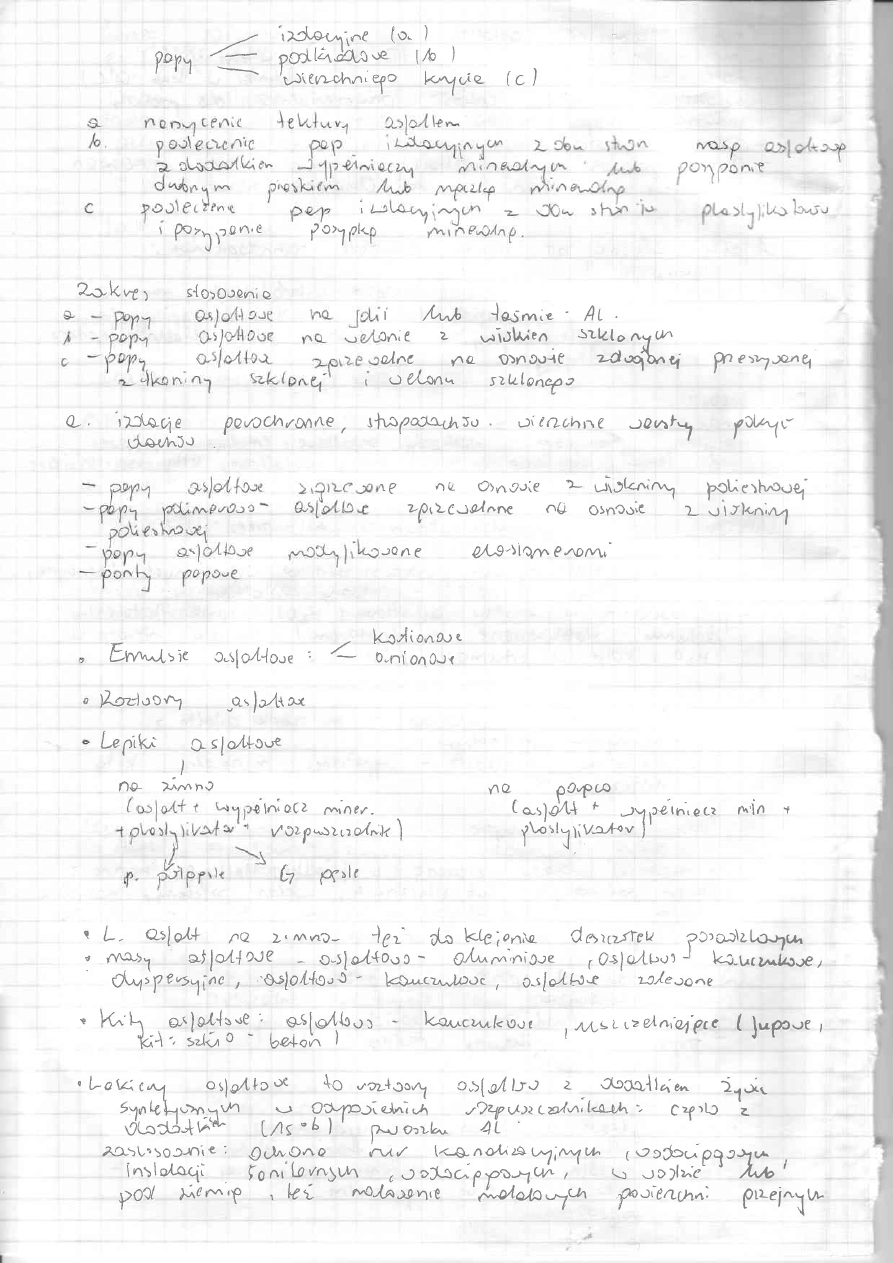 izolacyjne (a)
papy podkładowe (b)
wierzchniego krycia (c)
a nasycenie tektury asfaltem
b. powleczenie pap izolacyjnych z obu stron masą asfaltową
z dodatkiem wypełniaczy mineralnych lub posypanie
drobnym piaskiem lub mączką mineralną
c powleczenie pap izolacyjnych z obu stron
i posypanie posypką mineralną.
Zakres stosowania
a - papy asfaltowe na folii lub taśmie AL.
b - papy asfaltowe na welonie z włókien szklanych
c - papy asfaltowe zgrzewalne na osnowie zdwojonej przeszywanej
z tkaniny szklanej i welonu szklanego
a. izolacje parochronne, stropodachów. wierzchnie warstwy pokryć
dachów.
- papy asfaltowe zgrzewane na osnowie z włókniny poliestrowej
- papy polimerowo-asfaltowe zgrzewalne na osnowie z włókniny
poliestrowej
- papy asfaltowe modyfikowane elastomerami
- gonty papowe
kationowe
• Emulsje asfaltowe: anionowe
• Roztwory asfaltowe
• Lepiki asfaltowe
na zimno na gorąco
(asfalt + wypełniacz miner. (asfalt + wypełniacz min +
+ plastyfikator + rozpuszczalnik) plastyfikator)
p. półgęste G gęste
• L. asfalt na zimno - też do klejenia deszczułek posadzkowych
• masy asfaltowe - asfaltowo-aluminiowe, asfaltowo-kauczukowe,
dyspersyjne, asfaltowo-kauczukowe, asfaltowe zalewowe
• Kity asfaltowe: asfaltowo-kauczukowe, uszczelniające (fugowe,
kit: szkło - beton)
• Lakiery asfaltowe to roztwory asfaltów z dodatkiem żywic
syntetycznych w odpowiednich rozpuszczalnikach: często z
dodatkiem (15%) proszku AL
zastosowanie: ochrona rur kanalizacyjnych, wodociągowych,
instalacji sanitarnych, wodociągowych, w wodzie lub
pod ziemią, też malowanie metalowych powierzchni